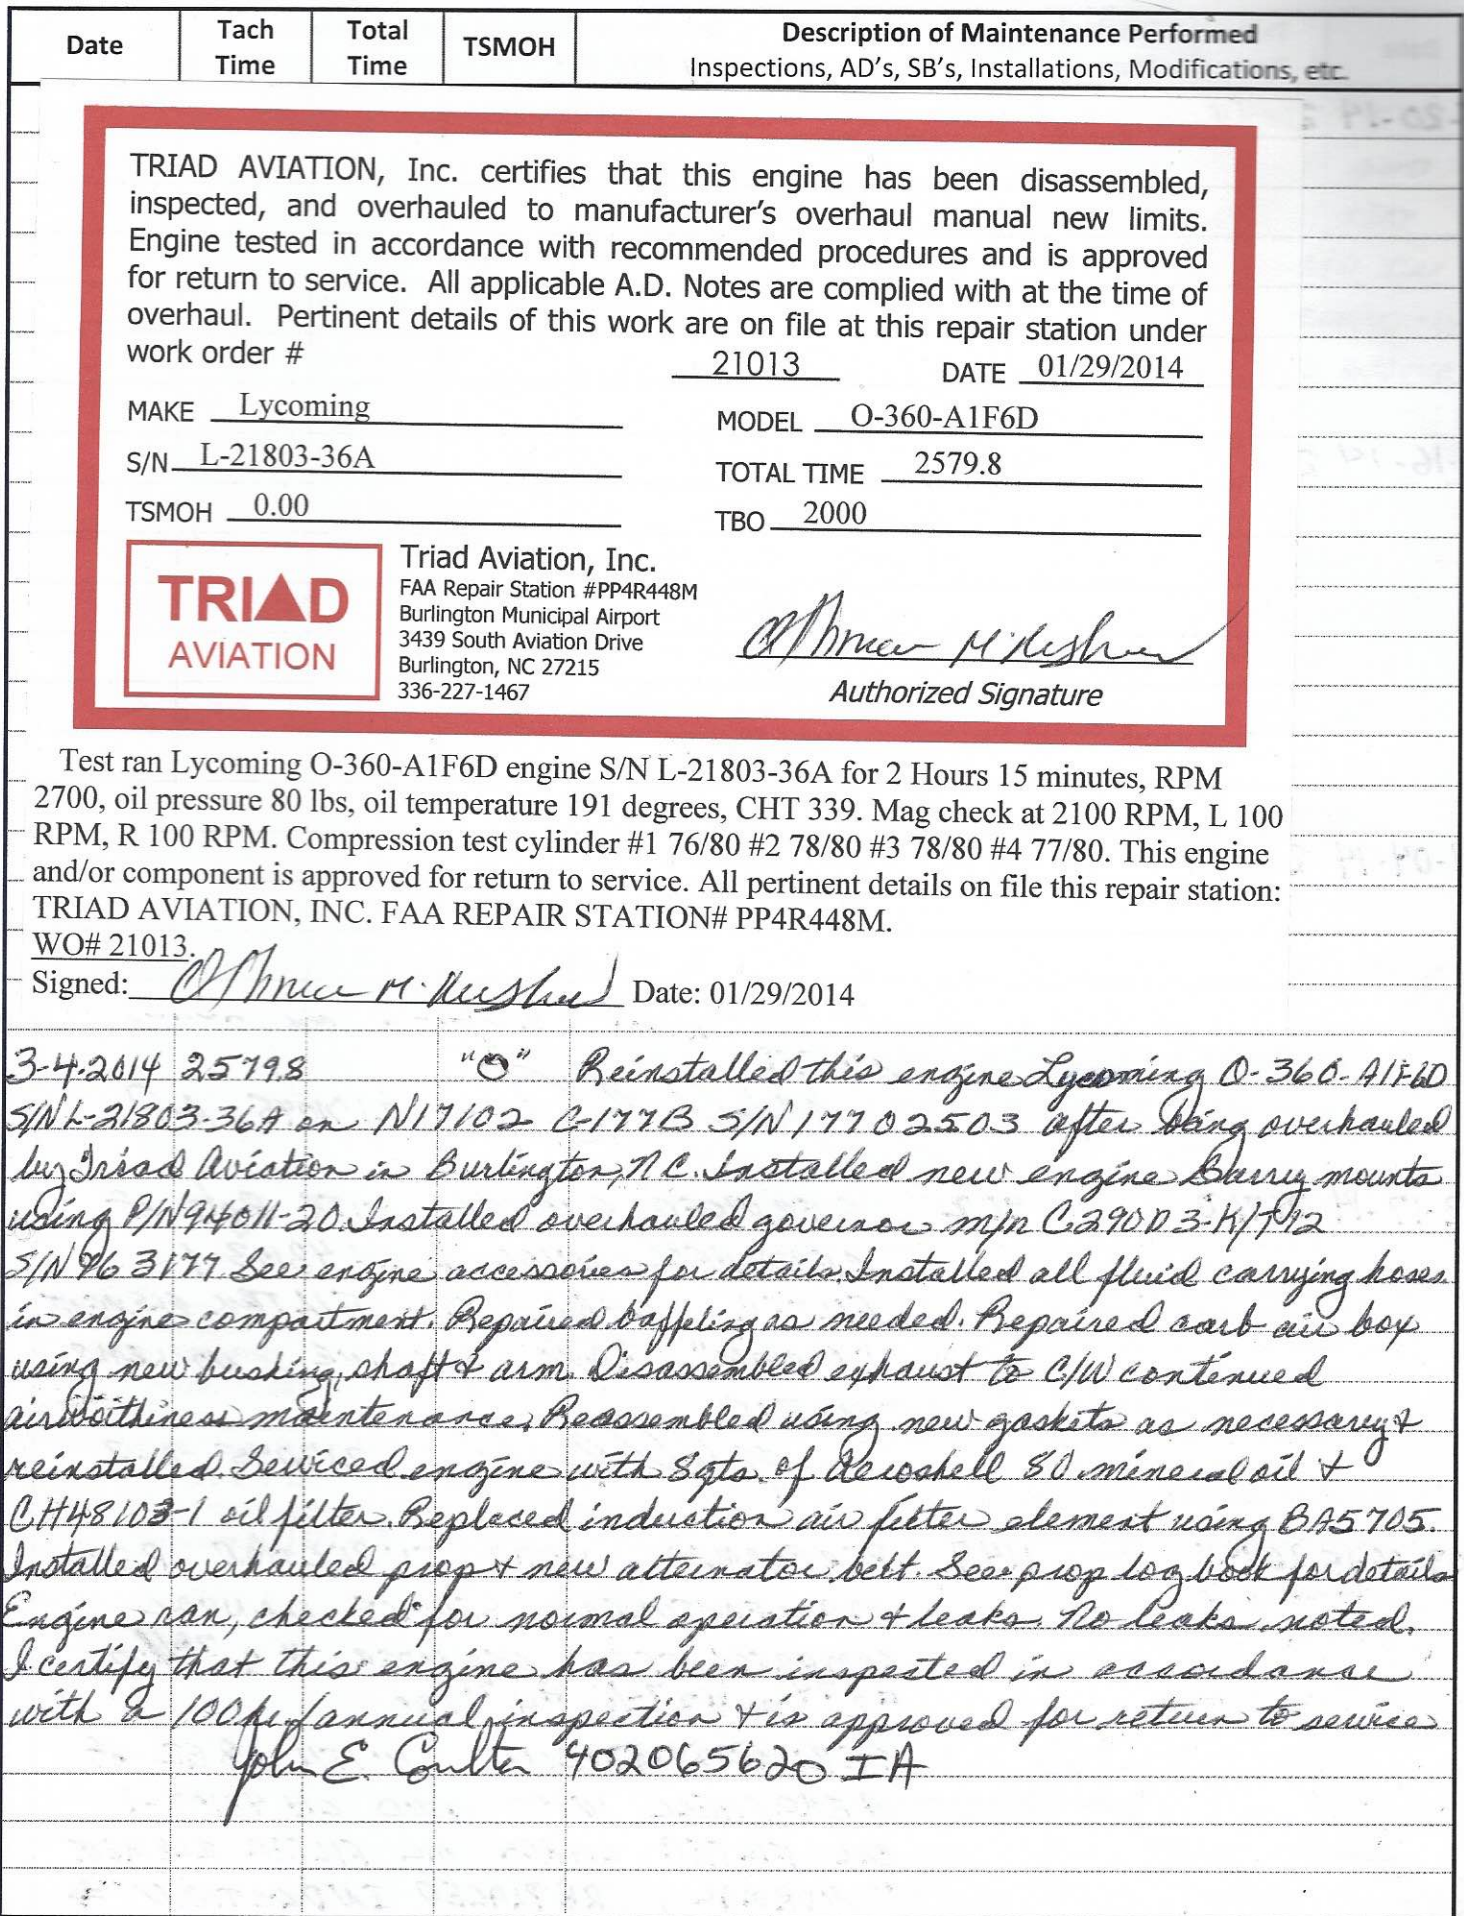 Date Tach Time Total Time TSMOH Description of Maintenance Performed
Inspections, AD's, SB's, Installations, Modifications, etc.
TRIAD AVIATION, Inc. certifies that this engine has been disassembled,
inspected, and overhauled to manufacturer's overhaul manual new limits.
Engine tested in accordance with recommended procedures and is approved
for return to service. All applicable A.D. Notes are complied with at the time of
overhaul. Pertinent details of this work are on file at this repair station under
work order # 21013 DATE 01/29/2014
MAKE Lycoming MODEL O-360-A1F6D
S/N L-21803-36A TOTAL TIME 2579.8
TSMOH 0.00 TBO 2000
TRIAD
AVIATION
Triad Aviation, Inc.
FAA Repair Station #PP4R448M
Burlington Municipal Airport
3439 South Aviation Drive
Burlington, NC 27215
336-227-1467
Authorized Signature
Test ran Lycoming O-360-A1F6D engine S/N L-21803-36A for 2 Hours 15 minutes, RPM
2700, oil pressure 80 lbs, oil temperature 191 degrees, CHT 339. Mag check at 2100 RPM, L 100
RPM, R 100 RPM. Compression test cylinder #1 76/80 #2 78/80 #3 78/80 #4 77/80. This engine
and/or component is approved for return to service. All pertinent details on file this repair station:
TRIAD AVIATION, INC. FAA REPAIR STATION# PP4R448M.
WO# 21013.
Signed: Date: 01/29/2014
3-4-2014 2579.8 "0" Reinstalled this engine Lycoming O-360-A1F6D
S/N L-21803-36A on N17102 C-177B S/N 17702503 after being overhauled
by Triad Aviation in Burlington, NC. Installed new engine Barry mounts
using P/N 94011-20. Installed overhauled governor m/n C290D3-K/T12
S/N 963177 See engine accessories for details. Installed all fluid carrying hoses
in engine compartment. Repaired baffeling as needed. Repaired carb air box
using new bushing, shaft & arm. Disassembled exhaust to C/W continued
airworthiness maintenance. Reassembled using new gaskets as necessary &
reinstalled. Serviced engine with 8qts. of Aeroshell 80 mineral oil &
CH48103-1 oil filter. Replaced induction air filter element using BA5705.
Installed overhauled prop & new alternator belt. See prop log book for details
Engine ran, checked for normal operation & leaks. No leaks noted.
I certify that this engine has been inspected in accordance
with a 100hr/annual inspection & is approved for return to service
John E. Coulter 402065620 IA